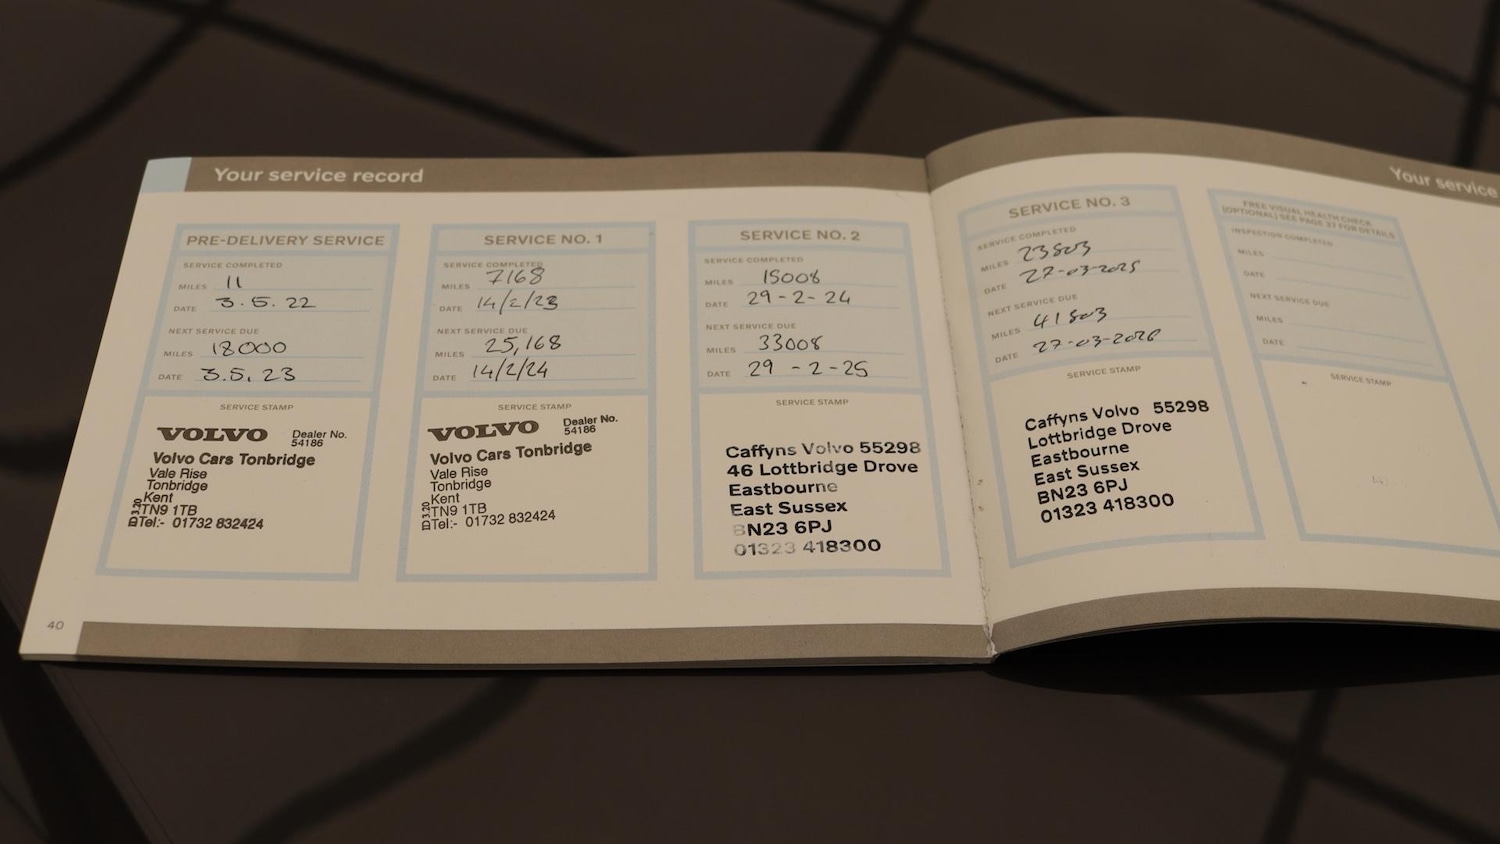 Your service record
PRE-DELIVERY SERVICE
SERVICE COMPLETED
MILES 11
DATE 3.5.22
NEXT SERVICE DUE
MILES 18000
DATE 3.5.23
SERVICE STAMP
VOLVO Dealer No. 54186
Volvo Cars Tonbridge
Vale Rise
Tonbridge
Kent
TN9 1TB
Tel:- 01732 832424
SERVICE NO. 1
SERVICE COMPLETED
MILES 7168
DATE 14/2/23
NEXT SERVICE DUE
MILES 25,168
DATE 14/2/24
SERVICE STAMP
VOLVO Dealer No. 54186
Volvo Cars Tonbridge
Vale Rise
Tonbridge
Kent
TN9 1TB
Tel:- 01732 832424
SERVICE NO. 2
SERVICE COMPLETED
MILES 15008
DATE 29-2-24
NEXT SERVICE DUE
MILES 33008
DATE 29-2-25
SERVICE STAMP
Caffyns Volvo 55298
46 Lottbridge Drove
Eastbourne
East Sussex
BN23 6PJ
01323 418300
40
Your service
SERVICE NO. 3
SERVICE COMPLETED
MILES 23803
DATE 27-03-2025
NEXT SERVICE DUE
MILES 41803
DATE 27-03-2026
SERVICE STAMP
Caffyns Volvo 55298
Lottbridge Drove
Eastbourne
East Sussex
BN23 6PJ
01323 418300
FREE VISUAL HEALTH CHECK
(OPTIONAL) SEE PAGE 37 FOR DETAILS
INSPECTION COMPLETED
MILES
DATE
NEXT SERVICE DUE
MILES
DATE
SERVICE STAMP